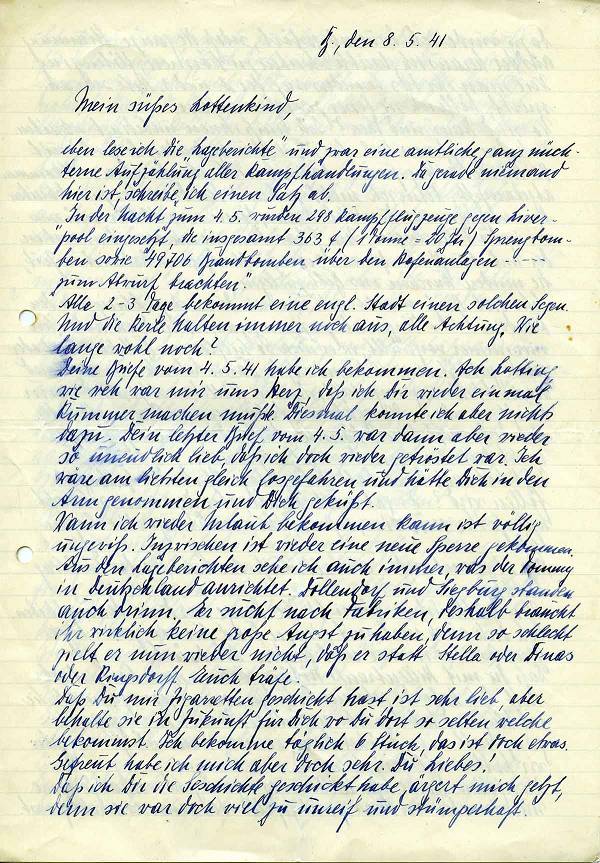 den 8. 5. 41
Mein süßes Lottenkind,
eben lese ich die „Lageberichte" und zwar eine amtliche ganz nüch-
terne Aufzählung aller Kampfhandlungen. Da gerade niemand
hier ist, schreibe ich einen Satz ab.
„In der Nacht zum 4. 5. wurden 298 Kampfflugzeuge gegen Liver-
pool eingesetzt, die insgesamt 363 t, (1 Tonne = 20 Ztr) Sprengbom-
ben sowie 49706 Brandbomben über den Hafenanlagen -----
zum Abwurf brachten".
Alle 2-3 Tage bekommt eine engl. Stadt einen solchen Segen.
Und die Kerle halten immer noch aus, alle Achtung. Wie
lange wohl noch?
Deine Briefe vom 4. 5. 41 habe ich bekommen. Ach Lotting
wie weh war mir ums Herz, daß ich Dir wieder einmal
Kummer machen mußte. Diesmal konnte ich aber nichts
dazu. Dein letzter Brief vom 4. 5. war dann aber wieder
so unendlich lieb, daß ich doch wieder getröstet war. Ich
wäre am liebsten gleich losgefahren und hätte Dich in den
Arm genommen und Dich geküßt.
Wann ich wieder Urlaub bekommen kann ist völlig
ungewiß. Inzwischen ist wieder eine neue Sperre gekommen.
Aus den Lageberichten sehe ich auch immer, was der Tommy
in Deutschland anrichtet. Dollendorf und Siegburg standen
auch drinn. Er sucht nach Fabriken, deshalb braucht
ihr wirklich keine große Angst zu haben, denn so schlecht
zielt er nun wieder nicht, daß er statt Stella oder Dinas
oder Ringsdorff Euch träfe.
Daß Du mir Zigaretten geschickt hast ist sehr lieb, aber
behalte sie in Zukunft für Dich wo Du dort so selten welche
bekommst. Ich bekomme täglich 6 Stück, das ist doch etwas.
Gefreut habe ich mich aber doch sehr. Du Liebes.
Daß ich Dir die Geschichte geschickt habe, ärgert mich jetzt,
denn sie war doch viel zu unreif und stümperhaft.